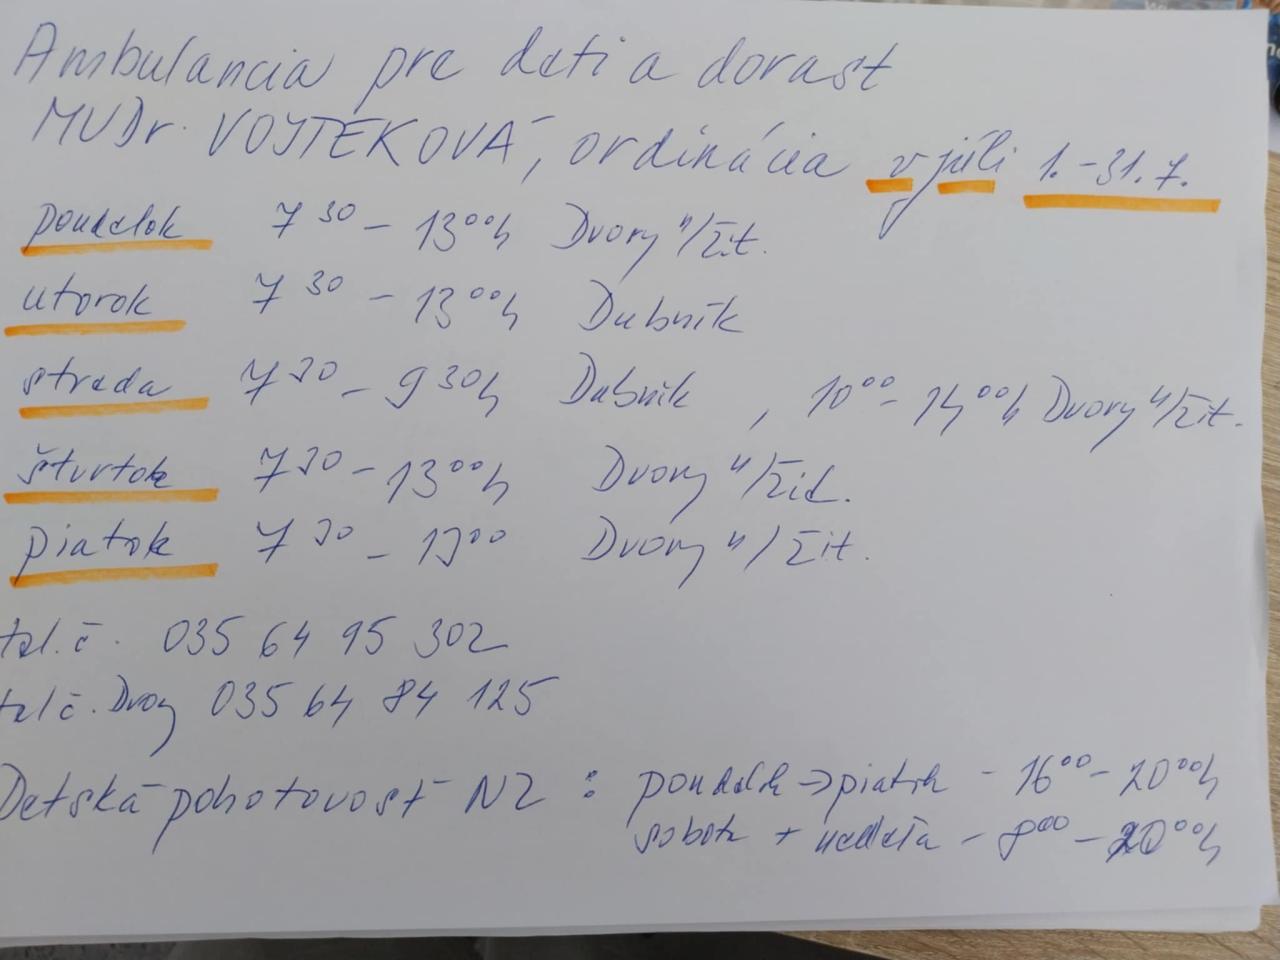 Ambulancia pre deti a dorast
MUDr. VOJTEKOVÁ, ordinácia v júli 1.-31.7.
pondelok 7 30 - 13 00 h Dvory n/Žit.
utorok 7 30 - 13 00 h Dubník
streda 7 30 - 9 30 h Dubník , 10 00 - 14 00 h Dvory n/Žit.
štvrtok 7 30 - 13 00 h Dvory n/Žit.
piatok 7 30 - 13 00 Dvory n/Žit.
tel.č. 035 64 95 302
tel č. Dvory 035 64 84 125
Detská pohotovosť NZ : pondelok → piatok - 16 00 - 20 00 h
sobota + nedeľa - 8 00 - 20 00 h